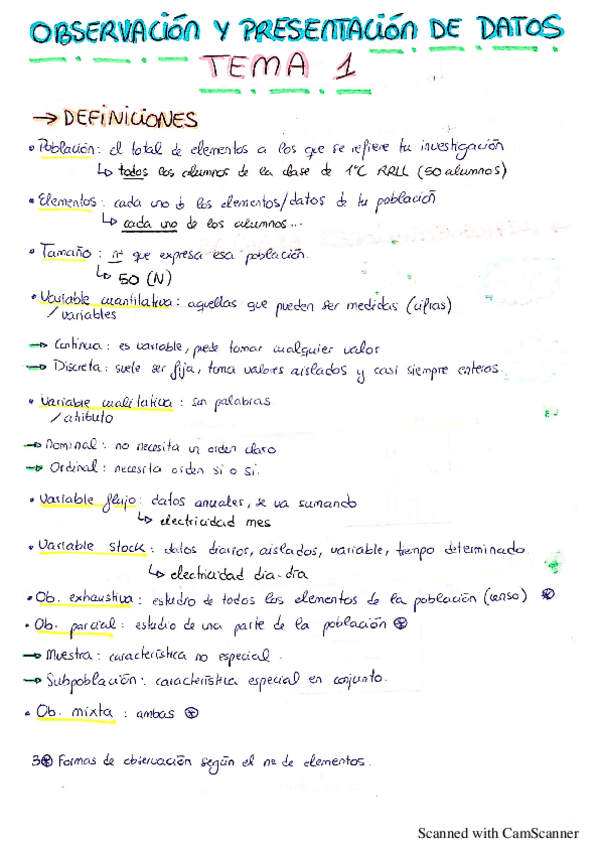 OBSERVACIÓN Y PRESENTACIÓN DE DATOS
TEMA 1
→ DEFINICIONES
• Población: el total de elementos a los que se refiere tu investigación
↳ todos los alumnos de la clase de 1ºC RRLL (50 alumnos)
• Elementos: cada uno d los elementos/datos de tu población
↳ cada uno de los alumnos...
• Tamaño: nº que expresa esa población.
↳ 50 (N)
• Variable cuantitativa: aquellas que pueden ser medidas (cifras)
/variables
→ Continua: es variable, puede tomar cualquier valor
→ Discreta: suele ser fija, toma valores aislados y casi siempre enteros.
• Variable cualitativa: son palabras
/atributo
→ Nominal: no necesita un orden claro
→ Ordinal: necesita orden si o si.
• Variable flujo: datos anuales, se va sumando
↳ electricidad mes
• Variable stock: datos diarios, aislados, variable, tiempo determinado.
↳ electricidad dia-dia
• Ob. exhaustiva: estudio de todos los elementos de la población (censo) ⊛
• Ob. parcial: estudio de una parte de la población ⊛
→ Muestra: característica no especial.
→ Subpoblación: característica especial en conjunto.
• Ob. mixta: ambas ⊛
3⊛ Formas de observación según el nº de elementos.
Scanned with CamScanner